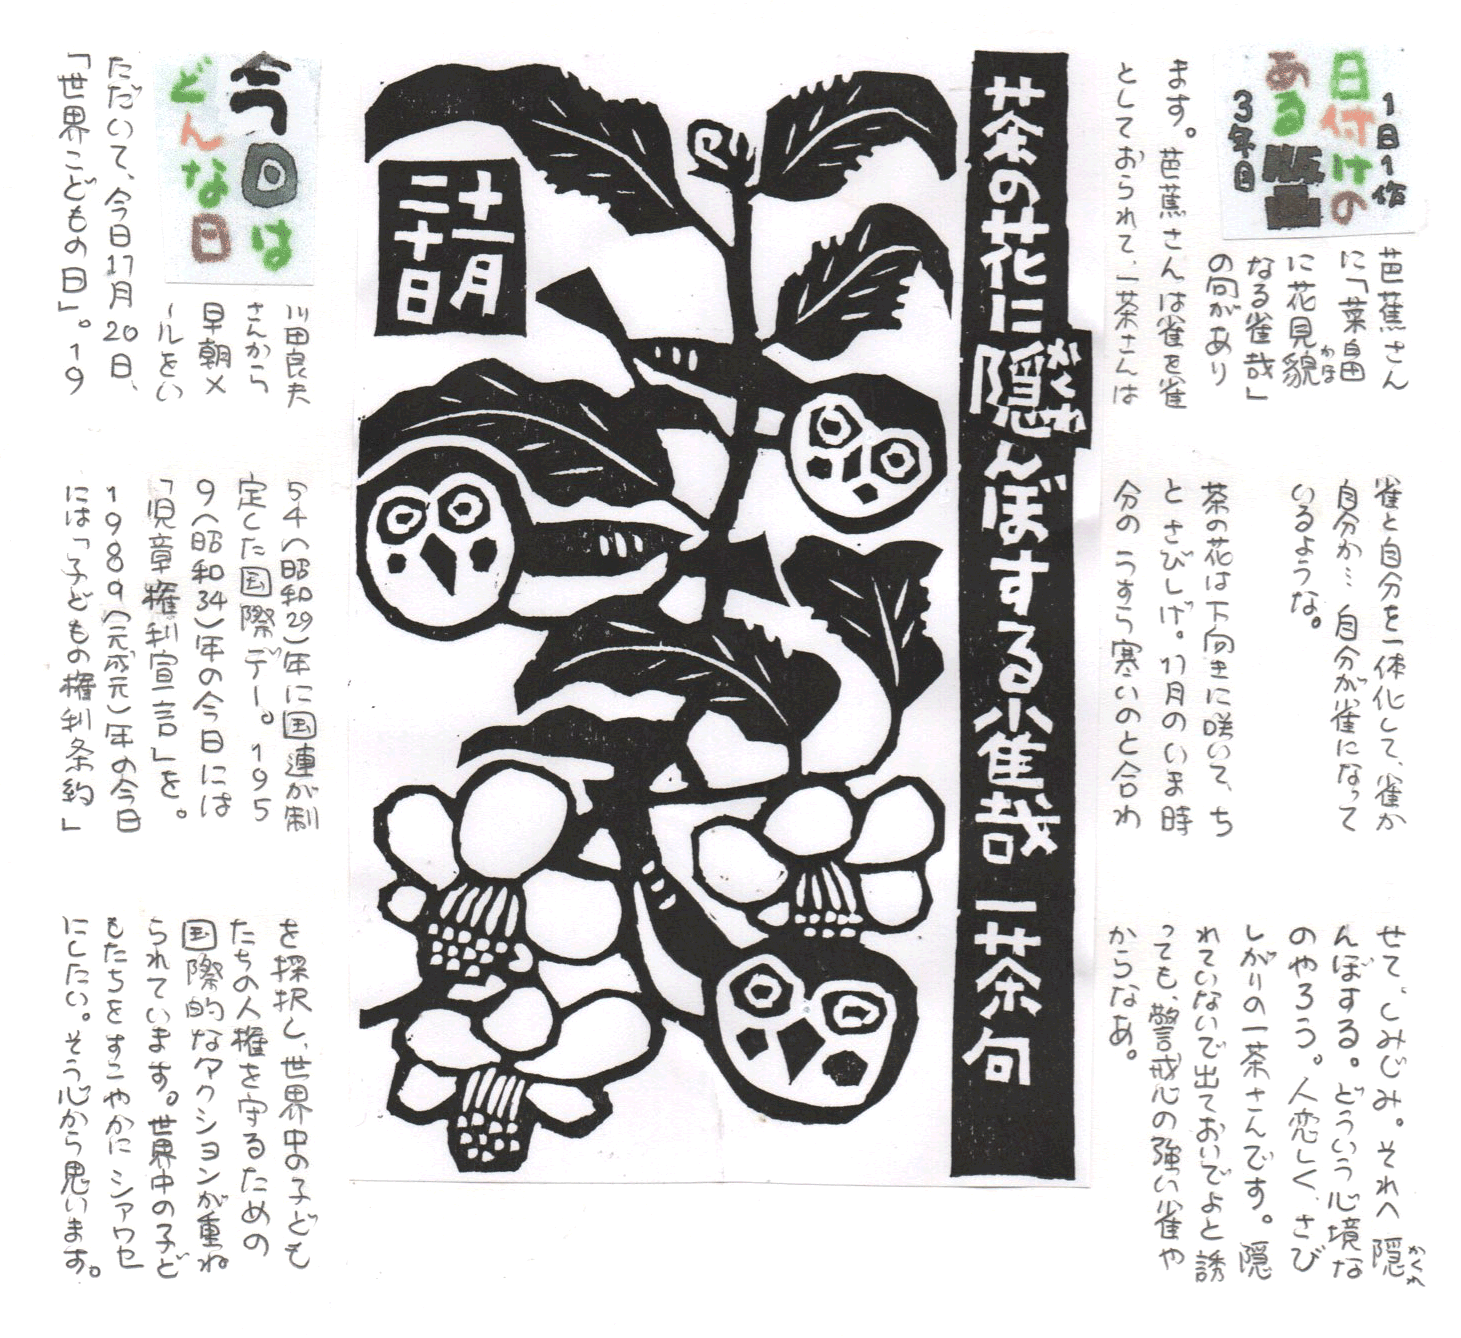 1日1作
日付けの
ある版画
3年目
芭蕉さん
に「菜畠
に花見貌
かほ
なる雀哉」
の句があり
ます。芭蕉さんは雀を雀
としておられて、一茶さんは
雀と自分を一体化して、雀か
自分か…自分が雀になって
いるような。
茶の花は下向きに咲いて、ち
とさびしげ。11月のいま時
分のうすら寒いのと合わ
せて、しみじみ。それへ隠
かくれ
んぼする。どういう心境な
のやろう。人恋しく、さび
しがりの一茶さんです。隠
れていないで出ておいでよと誘
っても、警戒心の強い雀や
からなあ。
茶の花に隠んぼする小雀哉 一茶句
かくれ
十一月
二十日
今日は
どんな日
川田良夫
さんから
早朝メ
ールをい
ただいて、今日11月20日、
「世界こどもの日」。19
54(昭和29)年に国連が制
定した国際デー。195
9(昭和34)年の今日には
「児童権利宣言」を。
1989(元成元)年の今日
には「子どもの権利条約」
を採択し、世界中の子ども
たちの人権を守るための
国際的なアクションが重ね
られています。世界中の子ど
もたちをすこやかにシアワセ
にしたい。そう心から思います。